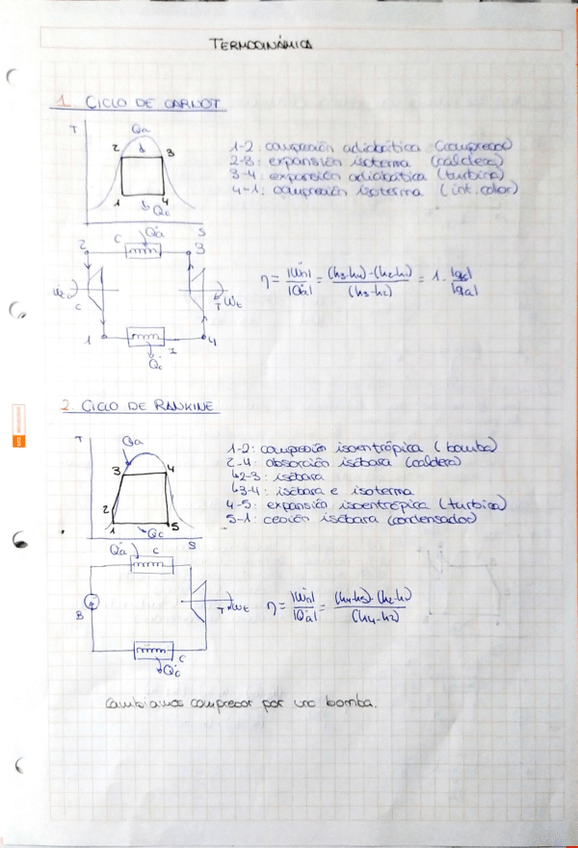 TERMODINÁMICA
1. CICLO DE CARNOT
T
Qa
2
3
1
4
Qc
S
1-2: compresión adiabática (compresor)
2-3: expansión isoterma (caldera)
3-4: expansión adiabática (turbina)
4-1: compresión isoterma (int. calor)
2
C
Q̇a
3
C
T Ẇt
1
I
4
Q̇c
η = |Ẇn| / |Q̇a| = (h3-h4)-(h2-h1) / (h3-h2) = 1 - |qc| / |qa|
2. CICLO DE RANKINE
T
Qa
3
4
2
1
5
Qc
S
1-2: compresión isoentrópica (bomba)
2-4: absorción isóbara (caldera)
↳2-3: isóbara
↳3-4: isóbara e isoterma
4-5: expansión isoentrópica (turbina)
5-1: cesión isóbara (condensador)
Q̇a
C
B
T Ẇt
C
Q̇c
η = |Ẇn| / |Q̇a| = (h4-h5)-(h2-h1) / (h4-h2)
Cambiamos compresor por una bomba.